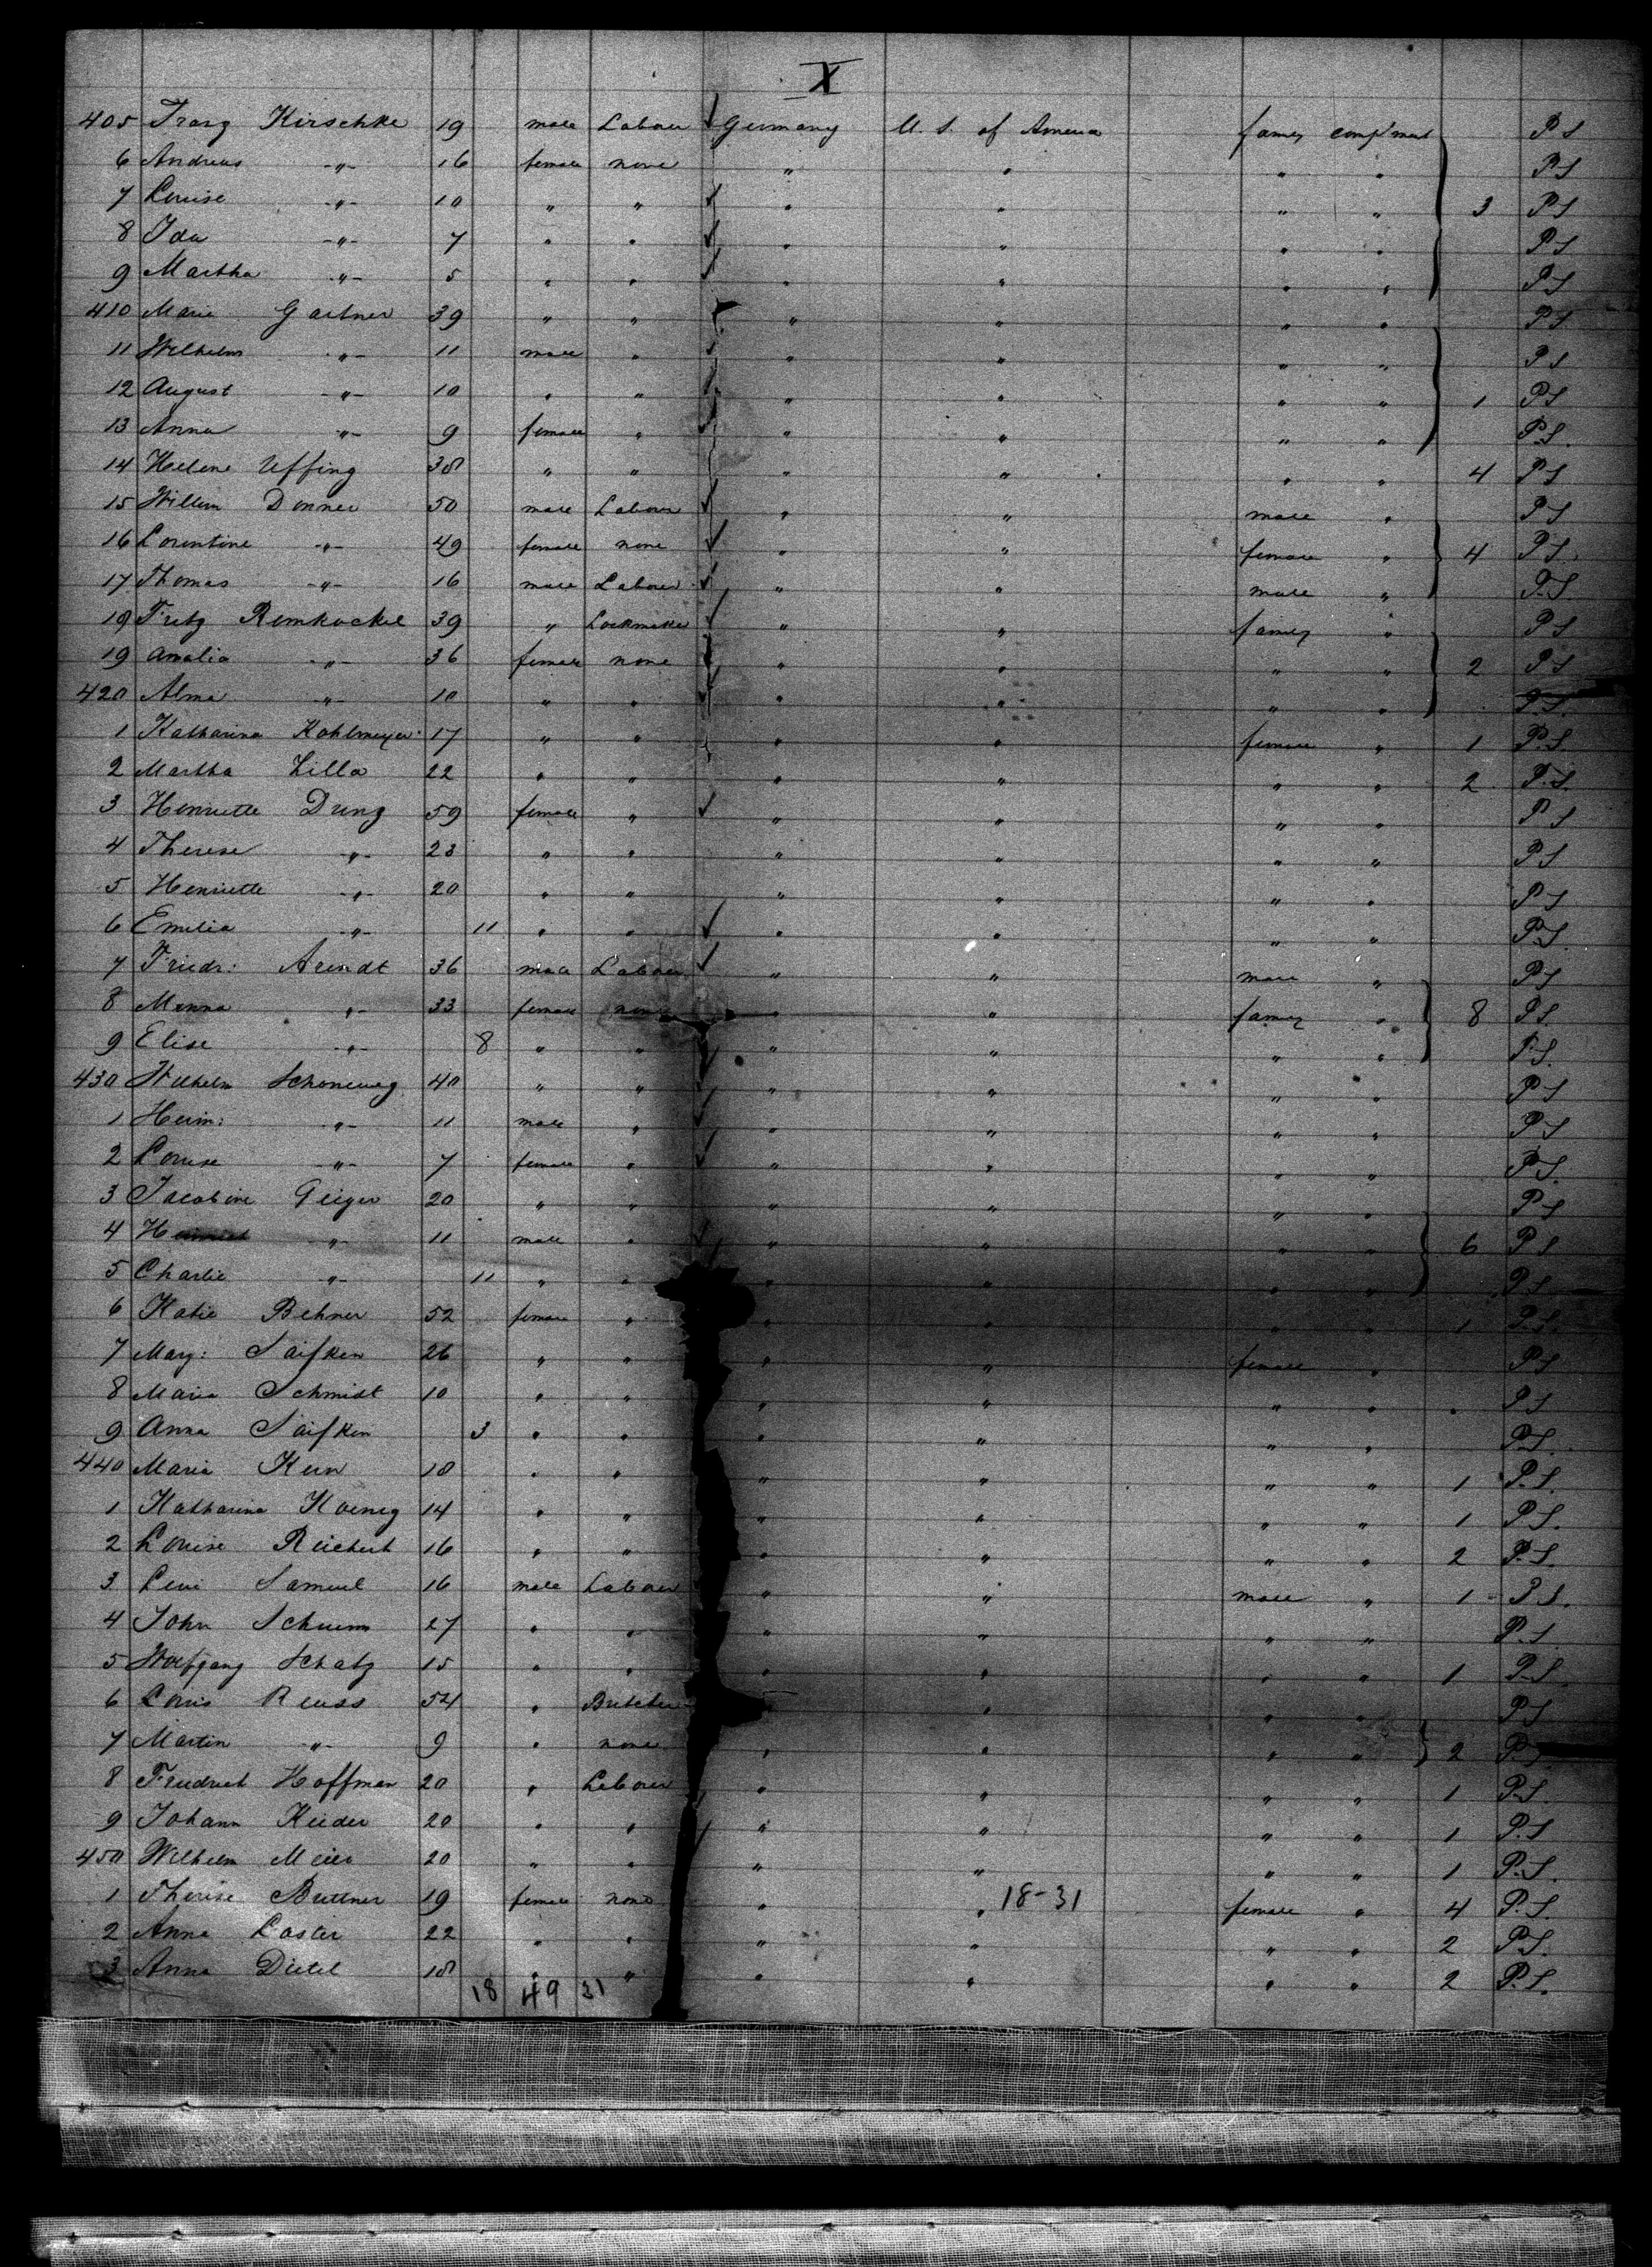 X
405 Franz Kirschke 19 male Labour Germany U. S. of America famey compment PS
6 Andreas -"- 16 female none " " " " PS
7 Louise -"- 10 " " " " " " 3 PS
8 Ida -"- 7 " " " " " " PS
9 Martha -"- 5 " " " " " " PS
410 Marie Gartner 39 " " " " " " PS
11 Wilhelm -"- 11 male " " " " " PS
12 August -"- 10 " " " " " " 1 PS
13 Anna -"- 9 female " " " " " P.S.
14 Helene Uffing 38 " " " " " " 4 PS
15 Willem Donner 50 male Labour " " male " PS
16 Lorentine -"- 49 female none " " female " 4 P.S.
17 Thomas -"- 16 male Labour " " male " P.S.
18 Fritz Remkockel 39 " Lockmaker " " famey " PS
19 Amalia -"- 36 female none " " " " 2 PS
420 Alma -"- 10 " " " " " " P.S.
1 Katharina Kohlmeyer 17 " " " " female " 1 P.S.
2 Martha Lilla 22 " " " " " " 2 P.S.
3 Henriette Dung 59 female " " " " " PS
4 Therese -"- 23 " " " " " " PS
5 Henriette -"- 20 " " " " " " PS
6 Emilia -"- 11 " " " " " " PS.
7 Friedr: Arendt 36 male Labour " " male " PS
8 Minna "- 33 female none " " famey " 8 PS.
9 Elise -"- 8 " " " " " " P.S.
430 Wilhelm Schoneweg 40 " " " " " " PS
1 Heinr: -"- 11 male " " " " " PS
2 Louise -"- 7 female " " " " " PS.
3 Jacobine Geiger 20 " " " " " " PS
4 Heinrich -"- 11 male " " " " " 6 PS
5 Charlie -"- 11 " " " " " " PS
6 Katie Behner 52 female " " " " " 1 P.S.
7 Mary: Saifken 26 " " " " female " PS
8 Maria Schmidt 10 " " " " " " PS
9 Anna Saifken 3 " " " " " " P.S.
440 Maria Kern 18 " " " " " " 1 P.S.
1 Katharina Koenig 14 " " " " " " 1 P.S.
2 Louise Reichert 16 " " " " " " 2 P.S.
3 Levi Samuel 16 male Labour " " male " 1 P.S.
4 John Schumm 27 " " " " " " P.S.
5 Wolfgang Schatz 15 " " " " " " 1 P.S.
6 Louis Reuss 54 " Butcher " " " PS
7 Martin -"- 9 " none " " " " 2 P.
8 Friedrich Hoffman 20 " Labour " " " " 1 P.S.
9 Johann Rieder 20 " " " " " " 1 P.S
450 Wilhelm Meier 20 " " " " " " 1 P.S.
1 Therese Buttner 19 female none " " 18-31 female " 4 P.S.
2 Anna Laster 22 " " " " " " 2 P.S.
3 Anna Dietel 18 " " " " " " 2 P.S.
18 49 31